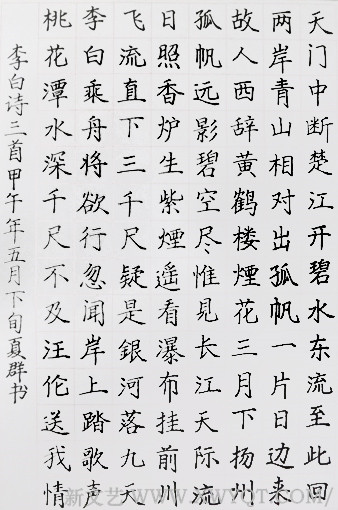 天门中断楚江开碧水东流至此回
两岸青山相对出孤帆一片日边来
故人西辞黄鹤楼煙花三月下扬州
孤帆远影碧空尽惟見长江天际流
日照香炉生紫煙遥看瀑布挂前川
飞流直下三千尺疑是銀河落九天
李白乘舟将欲行忽闻岸上踏歌声
桃花潭水深千尺不及汪伦送我情
李白诗三首甲午年五月下旬夏群书
新文艺